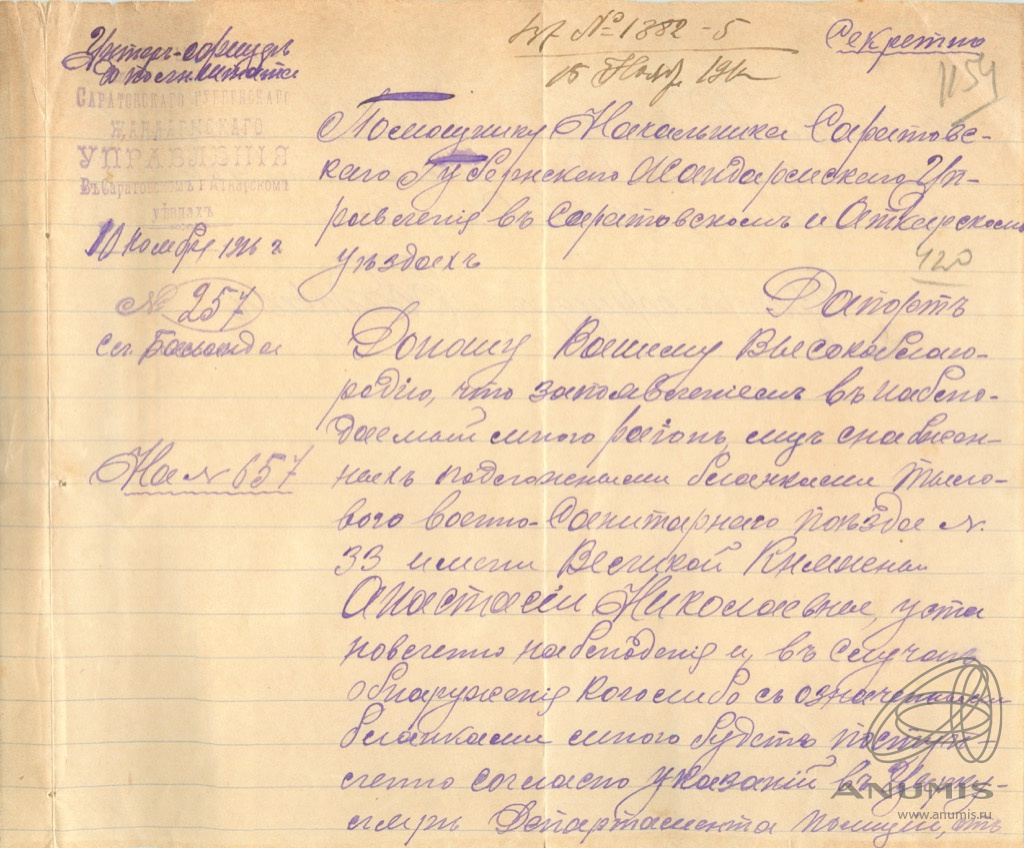 № 1882-5
15 Нояб. 1916
Секретно
1154
Унтеръ-офицеръ
дополн. штата
САРАТОВСКАГО ГУБЕРНСКАГО
ЖАНДАРМСКАГО
УПРАВЛЕНІЯ
Въ Саратовскомъ и Аткарскомъ
уѣздахъ
10 Ноября 1916 г.
№ 257
сл. Баланда
На № 657
Помощнику Начальника Саратовс-
каго Губернскаго Жандармскаго Уп-
равленія въ Саратовскомъ и Аткарскомъ
уѣздахъ
420
Рапортъ
Доношу Вашему Высокоблаго-
родію, что за появленіемъ въ наблю-
даемомъ мною раіонѣ лицъ снабжен-
ныхъ подложными бланками тыло-
вого военно-Санитарнаго поѣзда №
33 имени Великой Княжны
Анастасіи Николаевны, уста
новлено наблюденія и, въ случаѣ
обнаруженія кого либо съ означенными
бланками мною будетъ посту
плено согласно указаній въ Цирку-
лярѣ Департамента полиціи, отъ
ANUMIS
www.anumis.ru